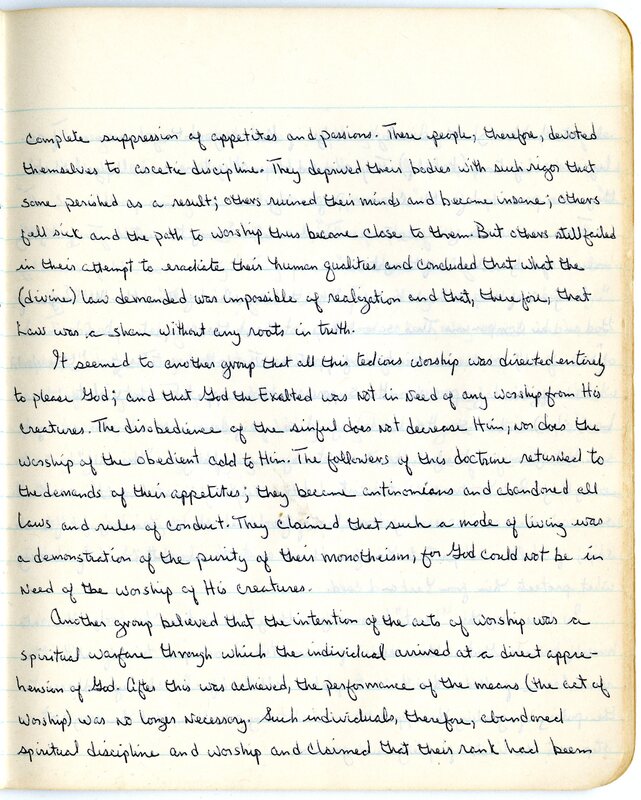 complete suppression of appetites and passions. These people, therefore, devoted
themselves to ascetic discipline. They deprived their bodies with such rigor that
some perished as a result; others ruined their minds and became insane; others
fell sick and the path to worship thus became close to them. But others still failed
in their attempt to eradicate their human qualities and concluded that what the
(divine) law demanded was impossible of realization and that, therefore, that
Law was a sham without any roots in truth.
It seemed to another group that all this tedious worship was directed entirely
to please God; and that God the Exalted was not in need of any worship from His
creatures. The disobedience of the sinful does not decrease Him, nor does the
worship of the obedient add to Him. The followers of this doctrine returned to
the demands of their appetites; they became antinomians and abandoned all
laws and rules of conduct. They claimed that such a mode of living was
a demonstration of the purity of their monotheism, for God could not be in
need of the worship of His creatures.
Another group believed that the intention of the acts of worship was a
spiritual warfare through which the individual arrived at a direct appre-
hension of God. After this was achieved, the performance of the means (the act of
worship) was no longer necessary. Such individuals, therefore, abandoned
spiritual discipline and worship and claimed that their rank had been